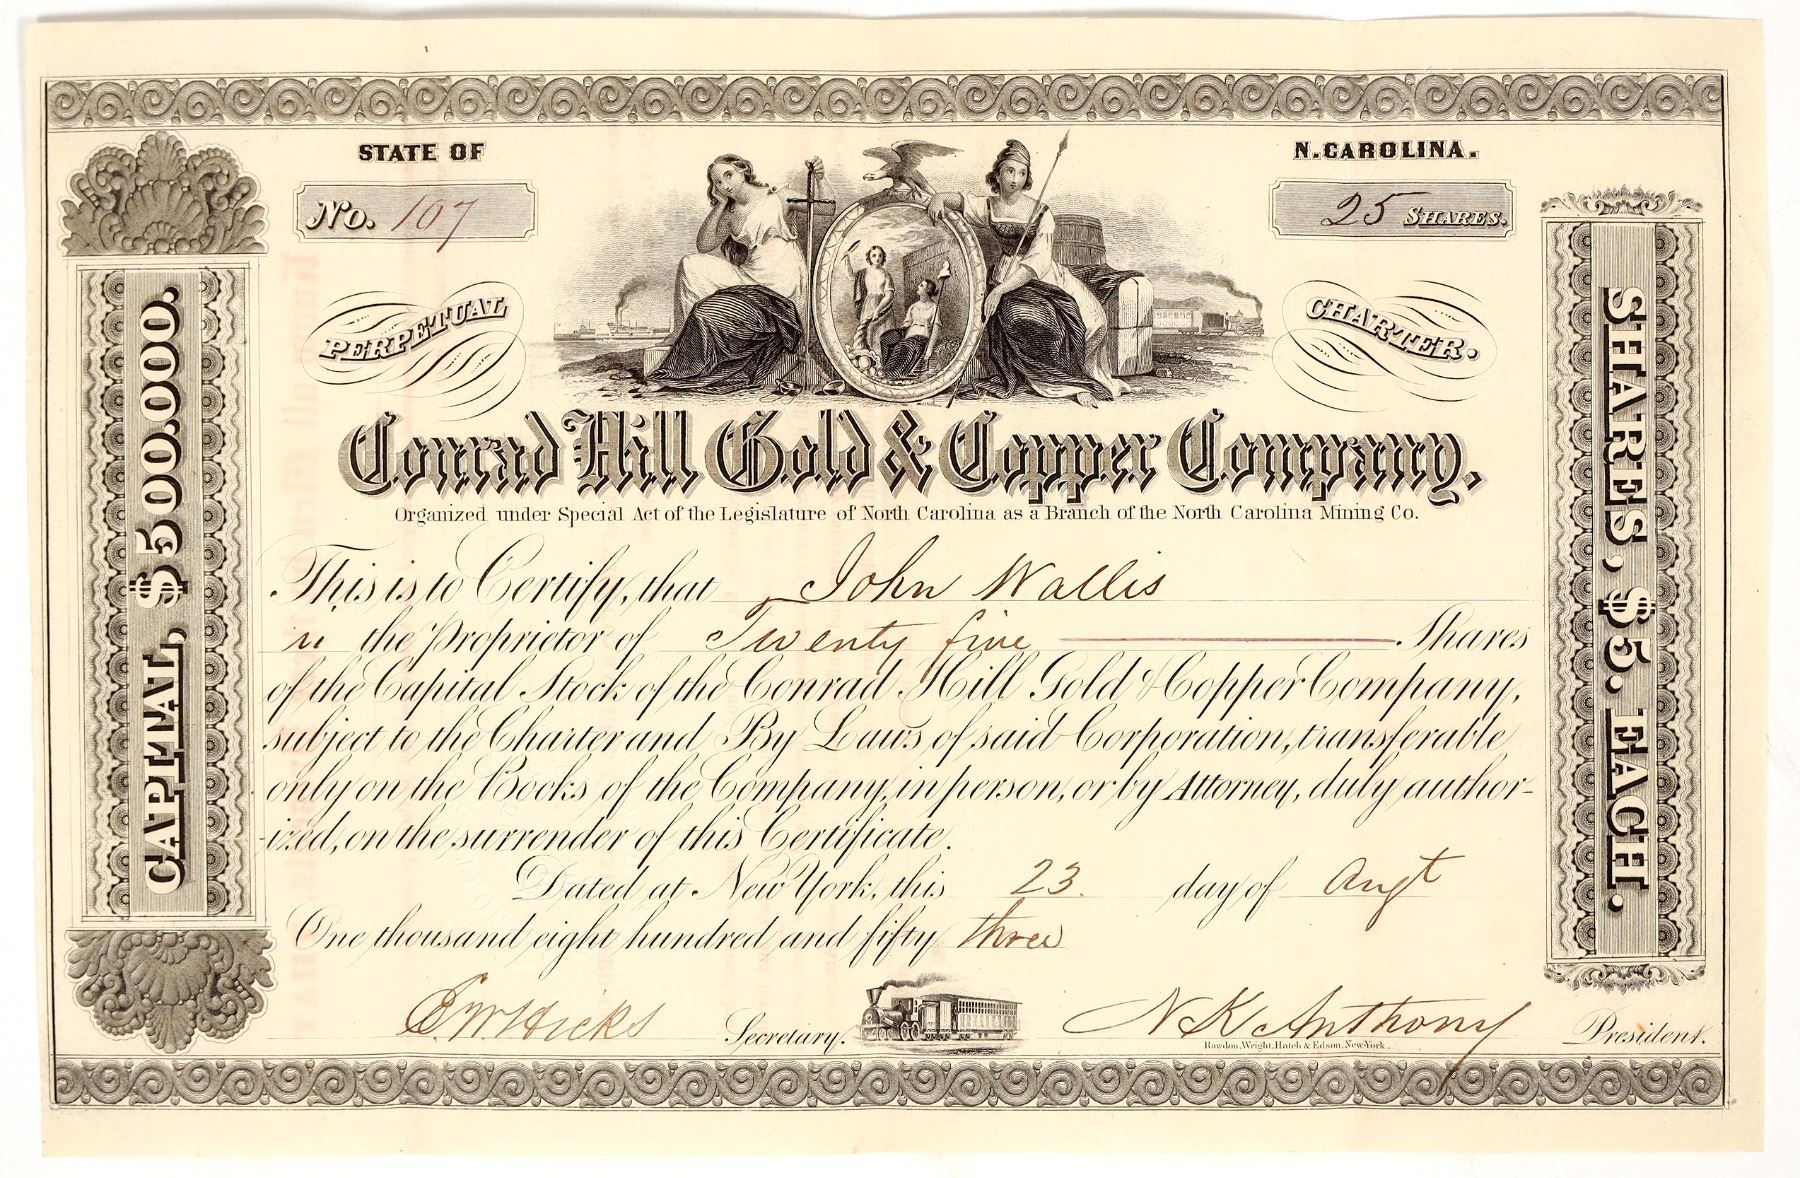 STATE OF
N. CAROLINA.
No. 107
25 SHARES.
PERPETUAL
CHARTER.
CAPITAL, $500.000.
SHARES, $5. EACH.
Conrad Hill Gold & Copper Company,
Organized under Special Act of the Legislature of North Carolina as a Branch of the North Carolina Mining Co.
This is to Certify, that John Wallis
is the Proprietor of Twenty five Shares
of the Capital Stock of the Conrad Hill Gold & Copper Company,
subject to the Charter and By Laws of said Corporation, transferable
only on the Books of the Company, in person, or by Attorney, duly author-
-ized, on the surrender of this Certificate.
Dated at New York, this 23. day of Augt
One thousand eight hundred and fifty three
E. W. Hicks Secretary.
N K Anthony President.
Rawdon, Wright, Hatch & Edson, New-York.